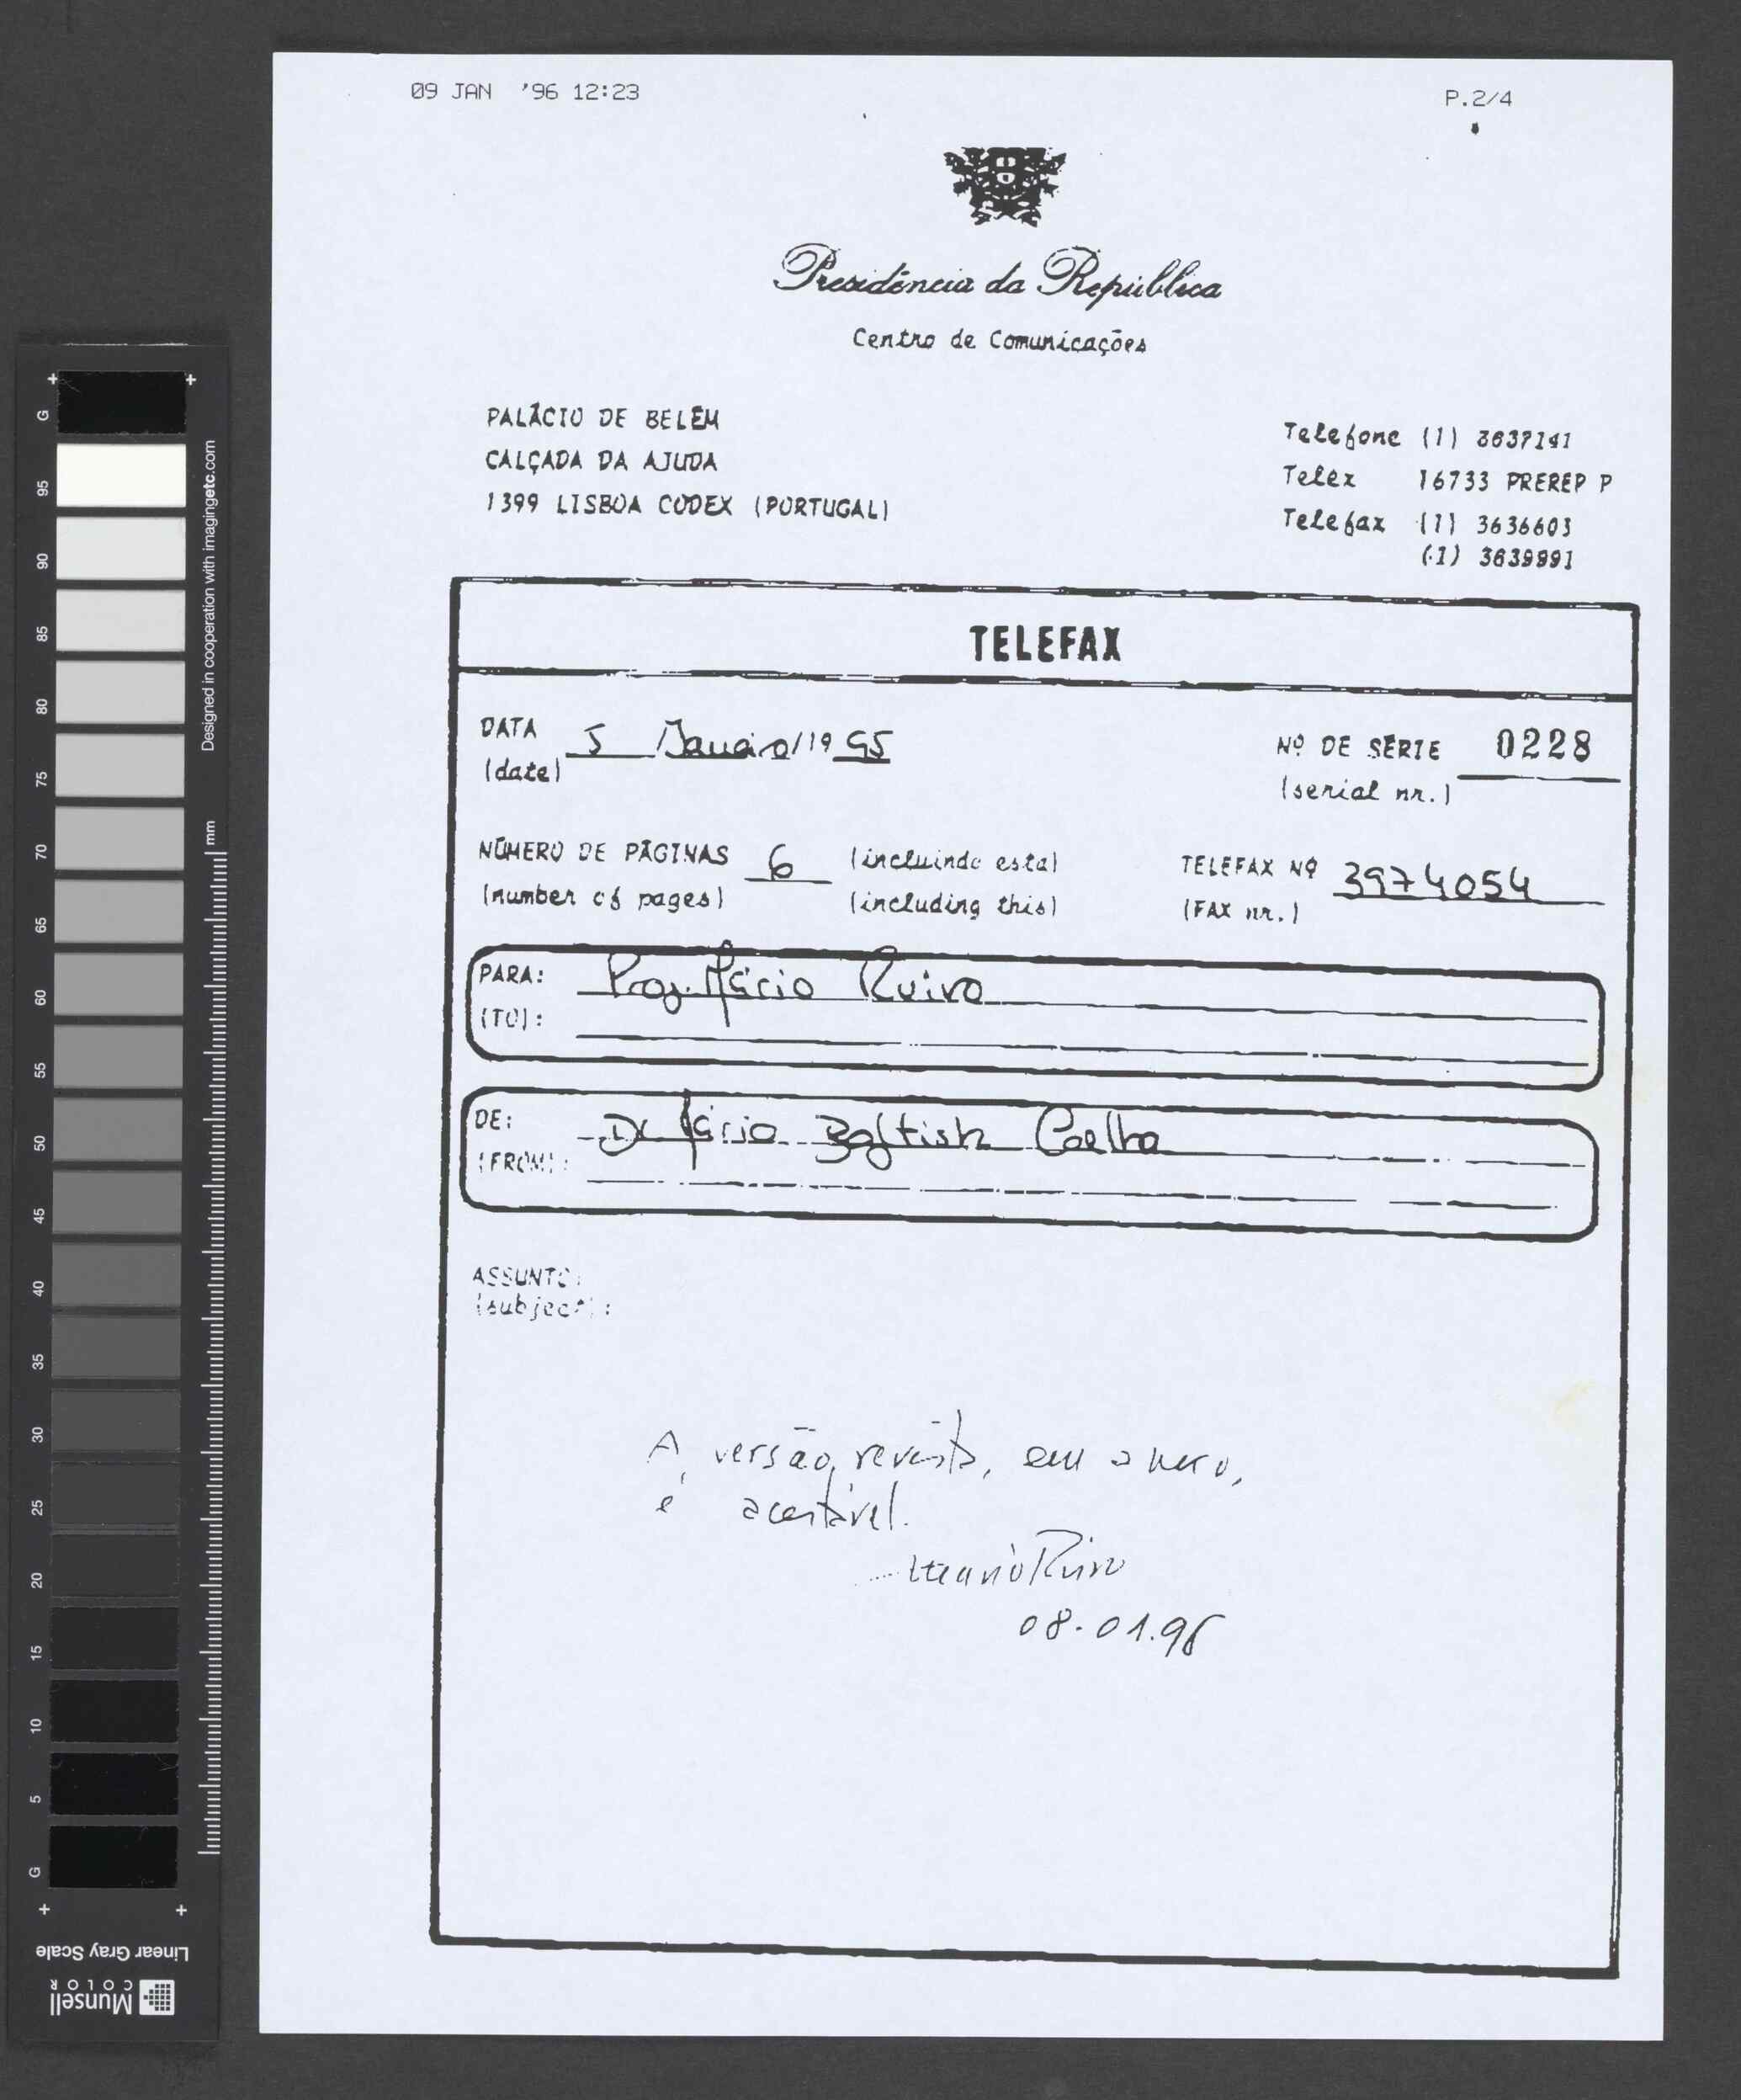 09 JAN '96 12:23
P.2/4
Presidência da República
Centro de Comunicações
PALÁCIO DE BELÉM
CALÇADA DA AJUDA
1399 LISBOA CODEX (PORTUGAL)
Telefone (1) 3637141
Telex 16733 PREREP P
Telefax (1) 3636603
(1) 3639891
TELEFAX
DATA 5 /Janeiro/19 95
(date)
Nº DE SÉRIE 0228
(serial nr.)
NÚMERO DE PÁGINAS 6 (incluindo esta)
(number of pages) (including this)
TELEFAX Nº 3974054
(FAX nr.)
PARA: Prof. Mário Ruivo
(TO):
DE: Dr Mário Baptista Coelho
(FROM):
ASSUNTO:
(subject):
A versão, revista, em anexo,
é aceitável.
Mário Ruivo
08.01.96
G
95
90
85
80
75
70
65
60
55
50
45
40
35
30
25
20
15
10
5
G
mm
Designed in cooperation with imagingetc.com
Linear Gray Scale
Munsell
COLOR